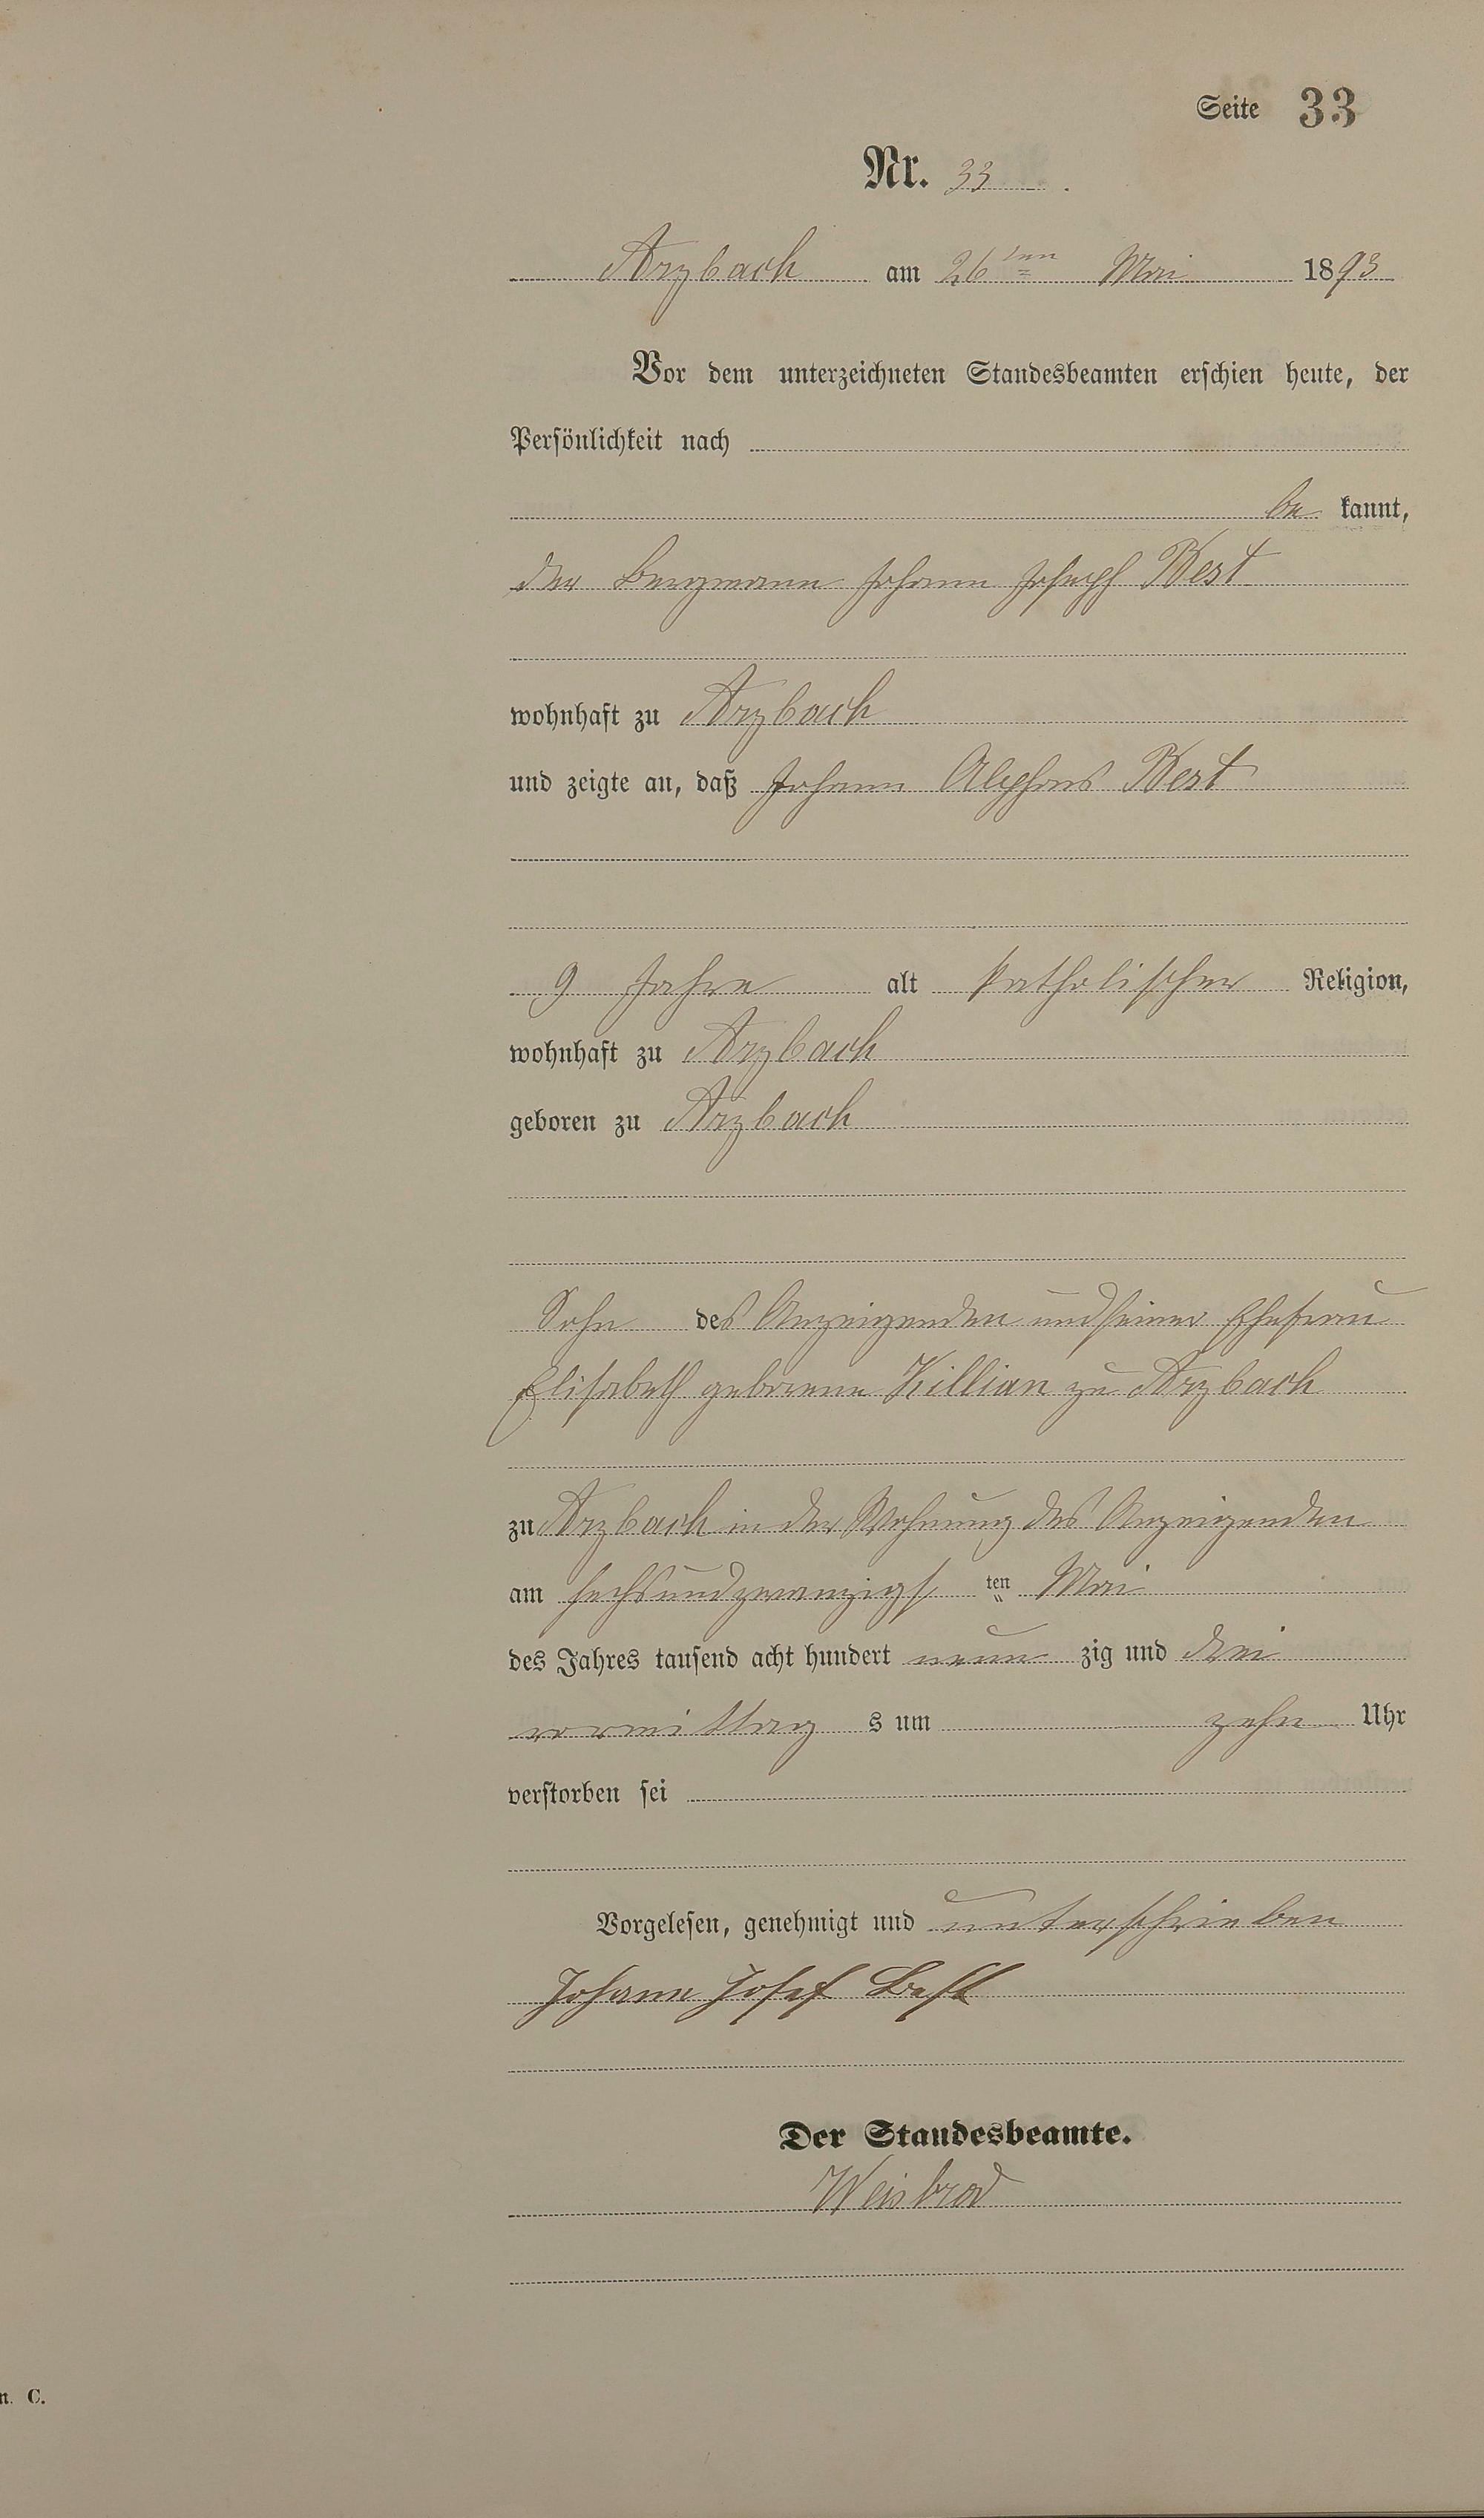 Seite 33
Nr. 33.
Arzbach am 26ten Mai 1893
Vor dem unterzeichneten Standesbeamten erschien heute, der
Persönlichkeit nach
be kannt,
der Bergmann Johann Joseph Best
wohnhaft zu Arzbach
und zeigte an, daß Johann Alphons Best
9 Jahre alt katholischer Religion,
wohnhaft zu Arzbach
geboren zu Arzbach
Sohn des Anzeigenden und seiner Ehefrau
Elisabeth geborene Killian zu Arzbach
zu Arzbach in der Wohnung des Anzeigenden
am sechsundzwanzigs ten Mai
des Jahres tausend acht hundert neun zig und drei
vormittag s um zehn Uhr
verstorben sei
Vorgelesen, genehmigt und unterschrieben
Johann Josef Best
Der Standesbeamte.
Weisbrod
n. C.